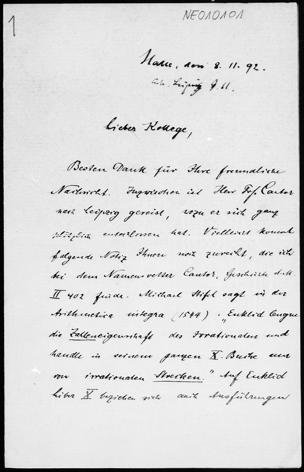 1
NE010101
Halle, den 8. 11. 92.
Leipzig 9. 11.
Lieber Kollege,
Besten Dank für Ihre freundliche
Nachricht. Inzwischen ist Herr Prof. Cantor
nach Leipzig gereist, wozu er sich ganz
plötzlich entschlossen hat. Vielleicht kommt
folgende Notiz Ihnen noch zurecht, die ich
bei dem Namensvetter Cantor, Geschichte d. M.
II 402 finde. Michael Stifel sagt in der
Arithmetica integra (1544): "Euklid leugne
die Zahleneigenschaft des Irrationalen und
handle in seinem ganzen X. Buche nur
von irrationalen Strecken." Auf Euklid
liber X beziehen sich auch Ausführungen